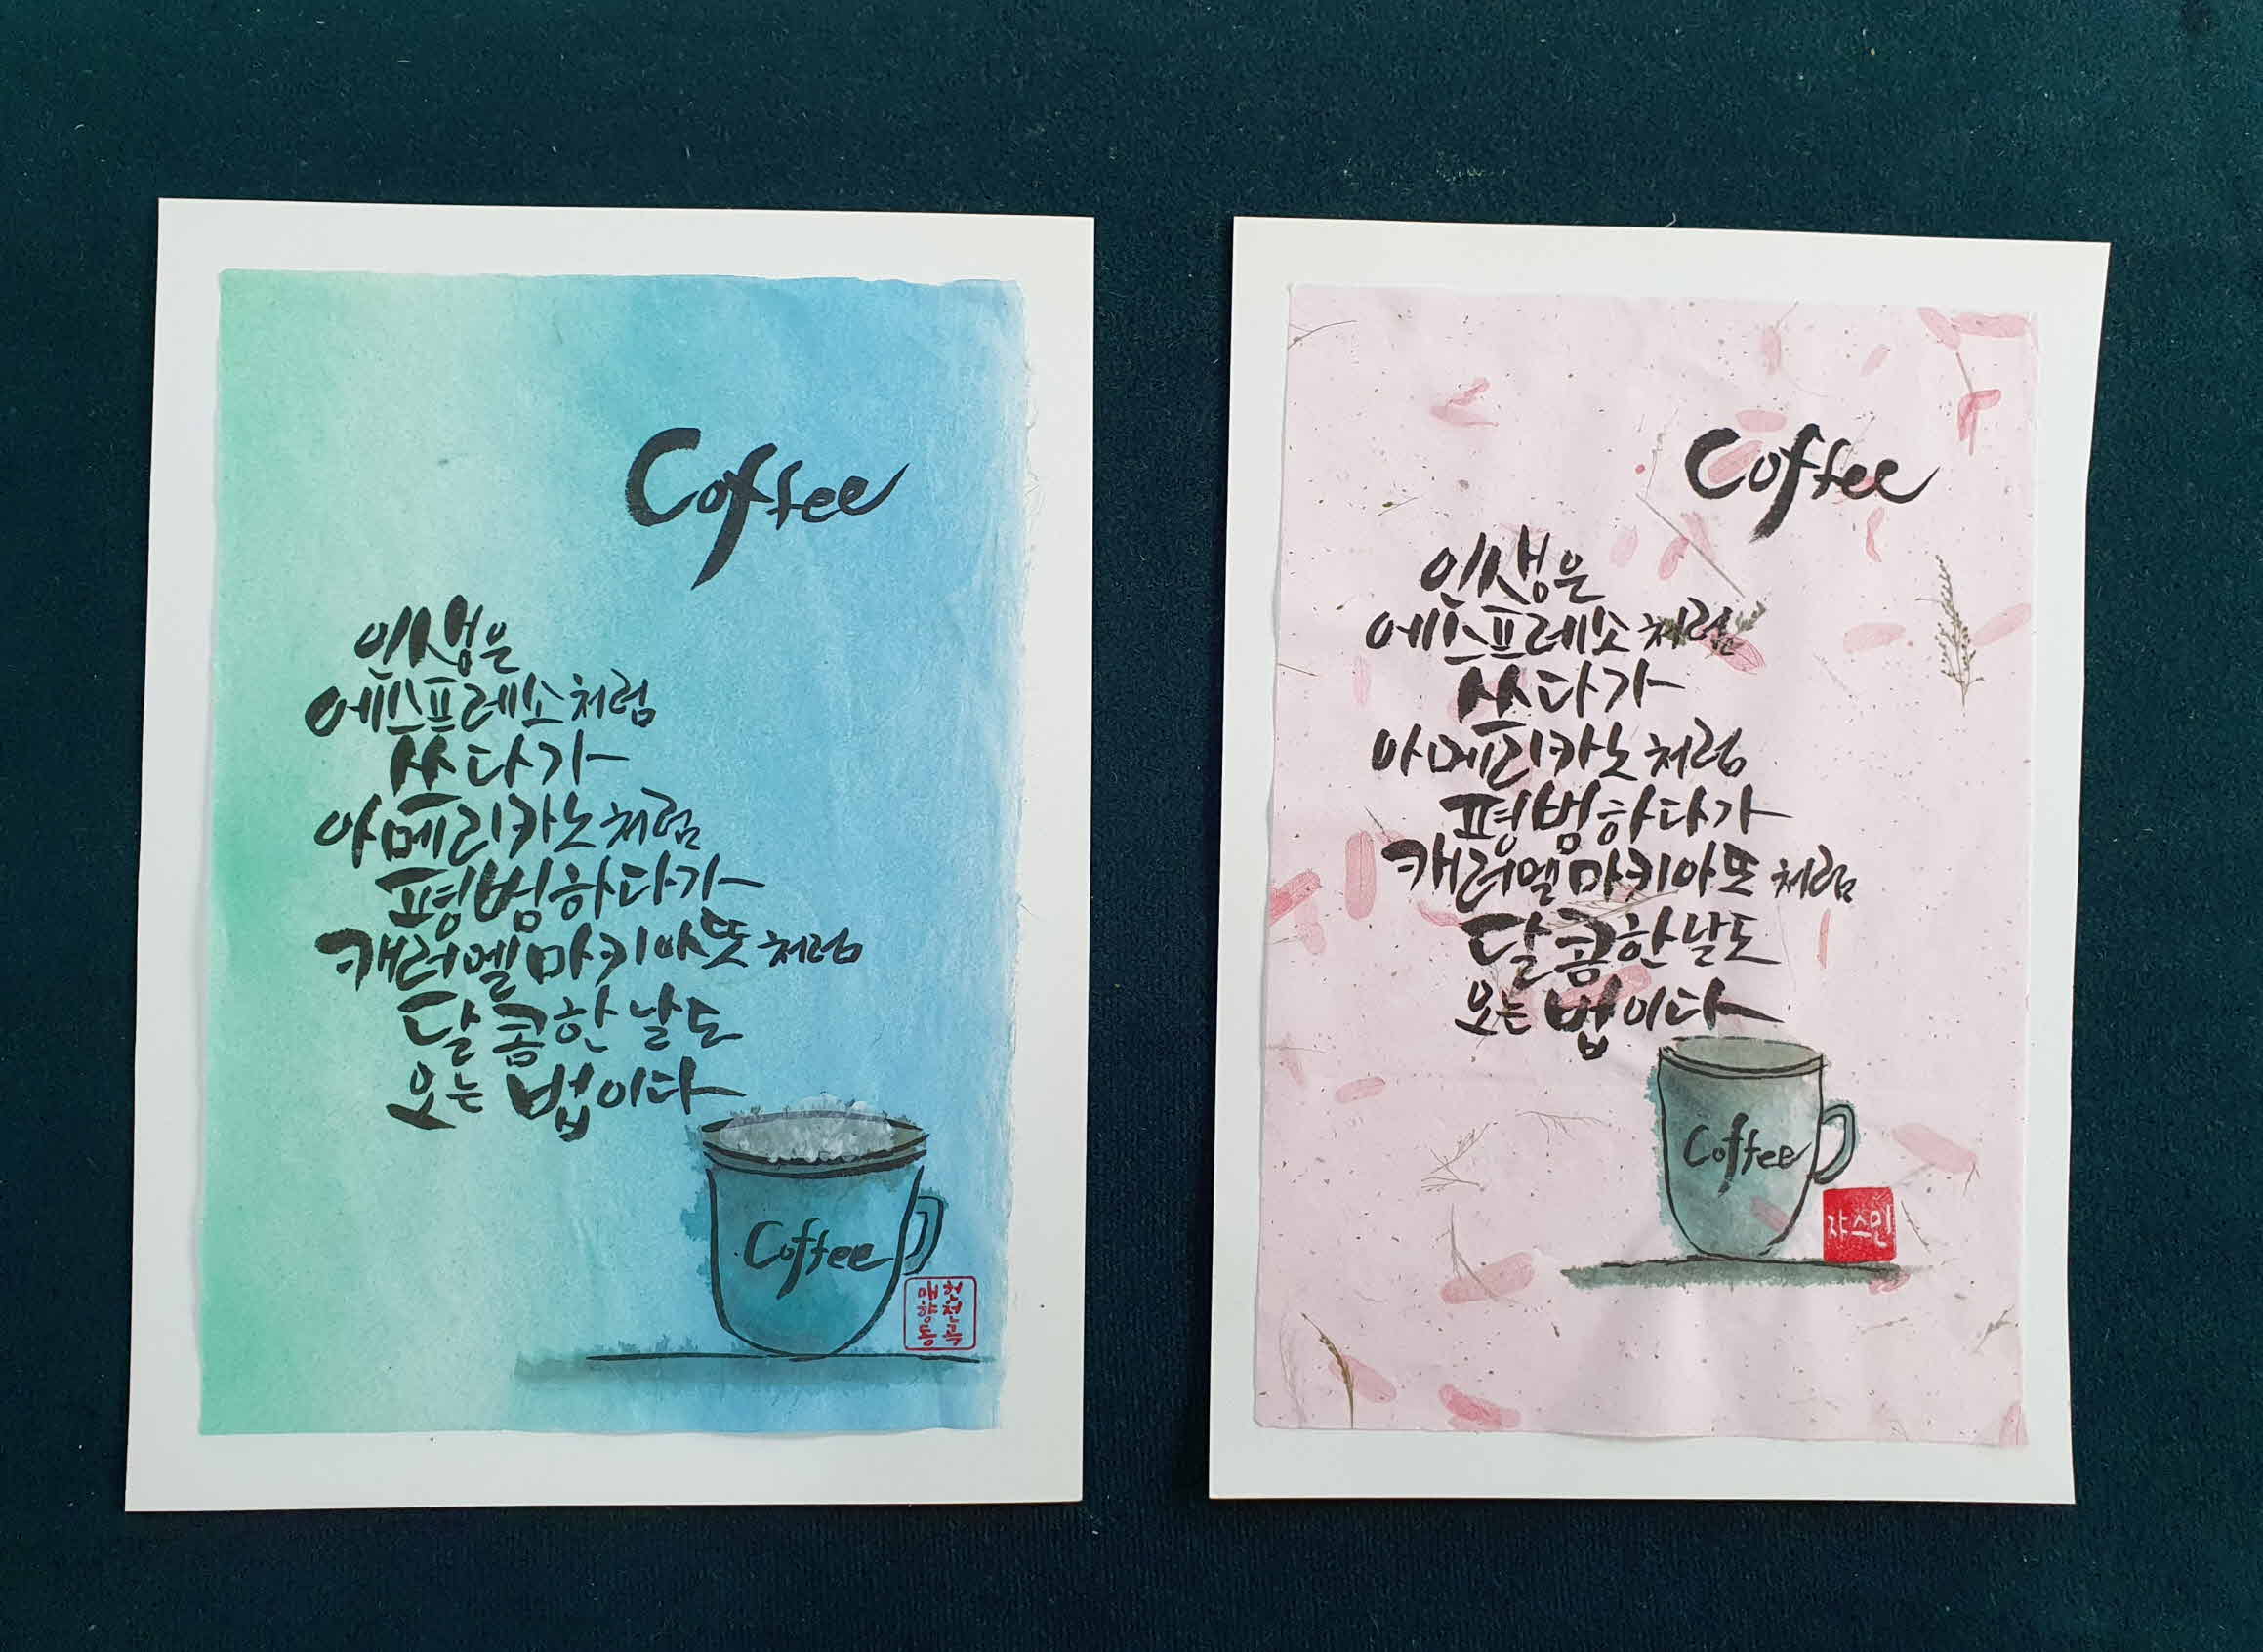 Coffee
인생은
에스프레소처럼
쓰다가
아메리카노처럼
평범하다가
캐러멜마키아또처럼
달콤한날도
오는 법이다
Coffee
매헌
향전
동곡
Coffee
인생은
에스프레소처럼
쓰다가
아메리카노처럼
평범하다가
캐러멜마키아또처럼
달콤한날도
오는 법이다
Coffee
쟈스민